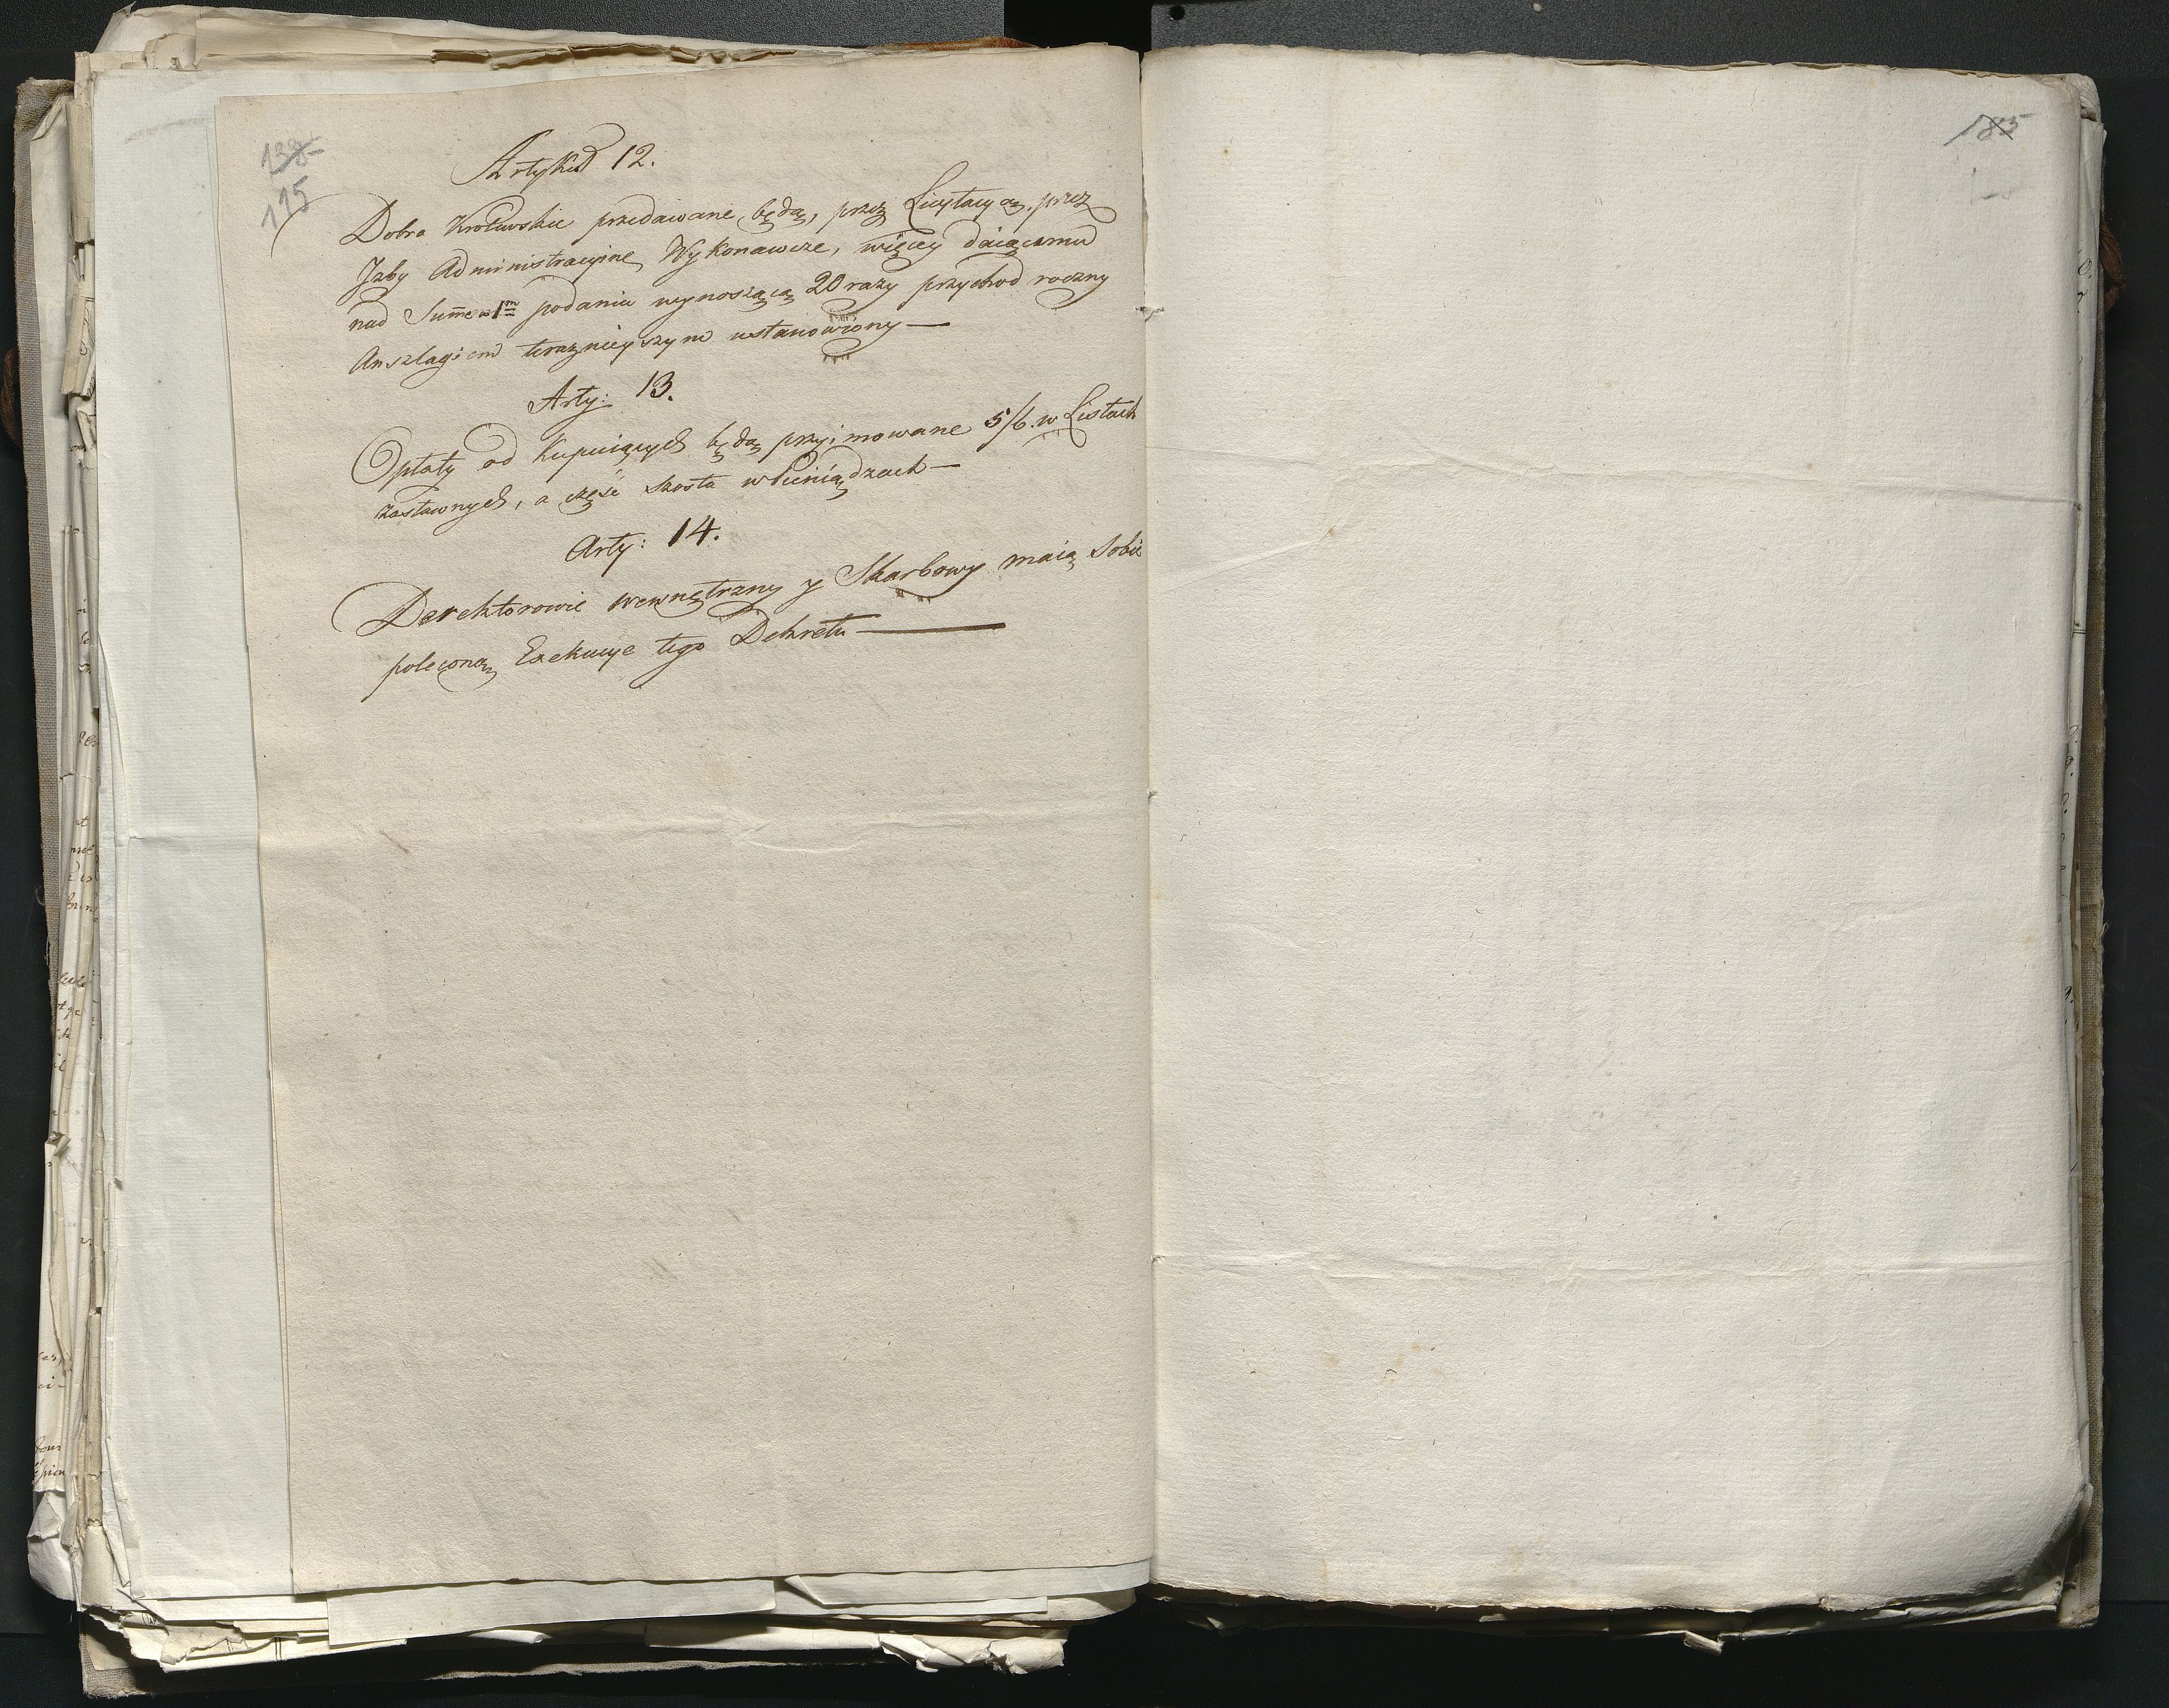 138
115
Artykuł 12.
Dobra Krolewskie przedawane będą, przez Licytacyą, przez
Jzby Administracyine Wykonawcze, więcey daiącemu
nad Summe w 1m podaniu wynoszącą 20 razy przychod roczny
Anszlagiem teraznieyszym ustanowiony —
Arty: 13.
Opłaty od kupuiących będą przyimowane 5/6. w Listach
zastawnych, a część szosta w Pieniądzach —
Arty: 14.
Derektorowie wewnętrzny y Skarbowy maią sobie
poleconą Exekucye tego Dekretu —
185